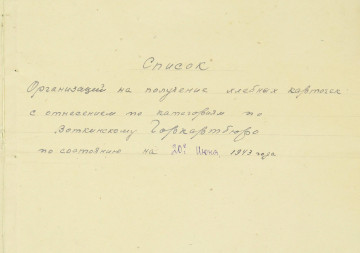 Список
Организаций на получение хлебных карточек
с отнесением по категориям по
Воткинскому Горкартбюро
по состоянию на 20е Июня 1943 года